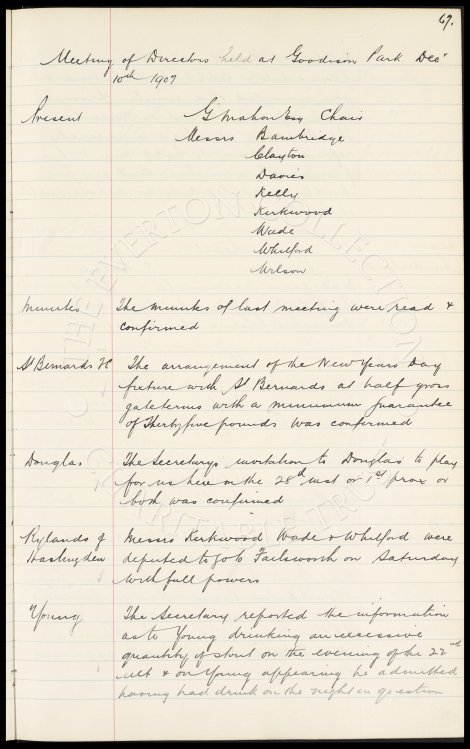 67.
Meeting of Directors held at Goodison Park Decr
10th 1907
Present G Mahon Esq Chair
Messrs Bainbridge
Clayton
Davies
Kelly
Kirkwood
Wade
Whitford
Wilson
Minutes The minutes of last meeting were read &
confirmed
St Bernards FC The arrangement of the New Years Day
fixture with St Bernards at half gross
gate terms with a minimum guarantee
of Thirty five pounds was confirmed
Douglas The Secretarys invitation to Douglas to play
for us here on the 28th inst or 1st prox or
both was confirmed
Rylands of Haslingden Messrs Kirkwood Wade & Whitford were
deputed to go to Failsworth on Saturday
with full powers
Young The Secretary reported the information
as to Young drinking an excessive
quantity of stout on the evening of the 22nd
ult & on Young appearing he admitted
having had drink on the night in question
THE EVERTON COLLECTION
CHARITABLE TRUST